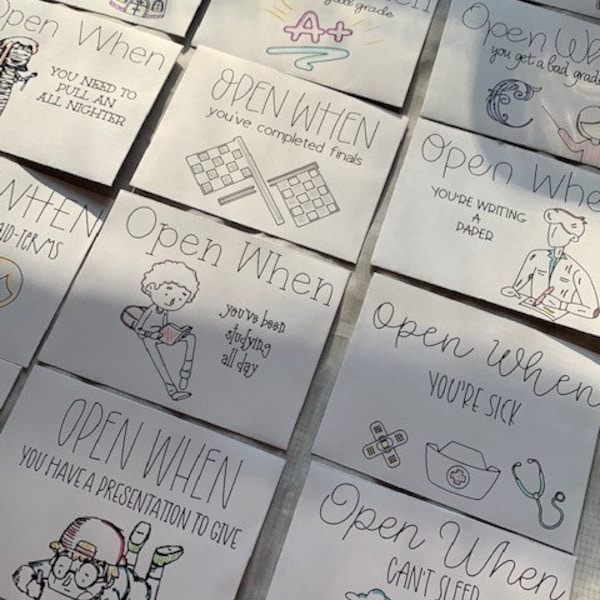 Open When
YOU NEED TO
PULL AN
ALL NIGHTER
good grade
A+
Open When
you get a bad grade
C
OPEN WHEN
you've completed finals
Open When
YOU'RE WRITING
A
PAPER
WHEN
Open When
you've been
studying
all day
Open When
YOU'RE SICK
OPEN WHEN
YOU HAVE A PRESENTATION TO GIVE
Open When
CAN'T SLEEP